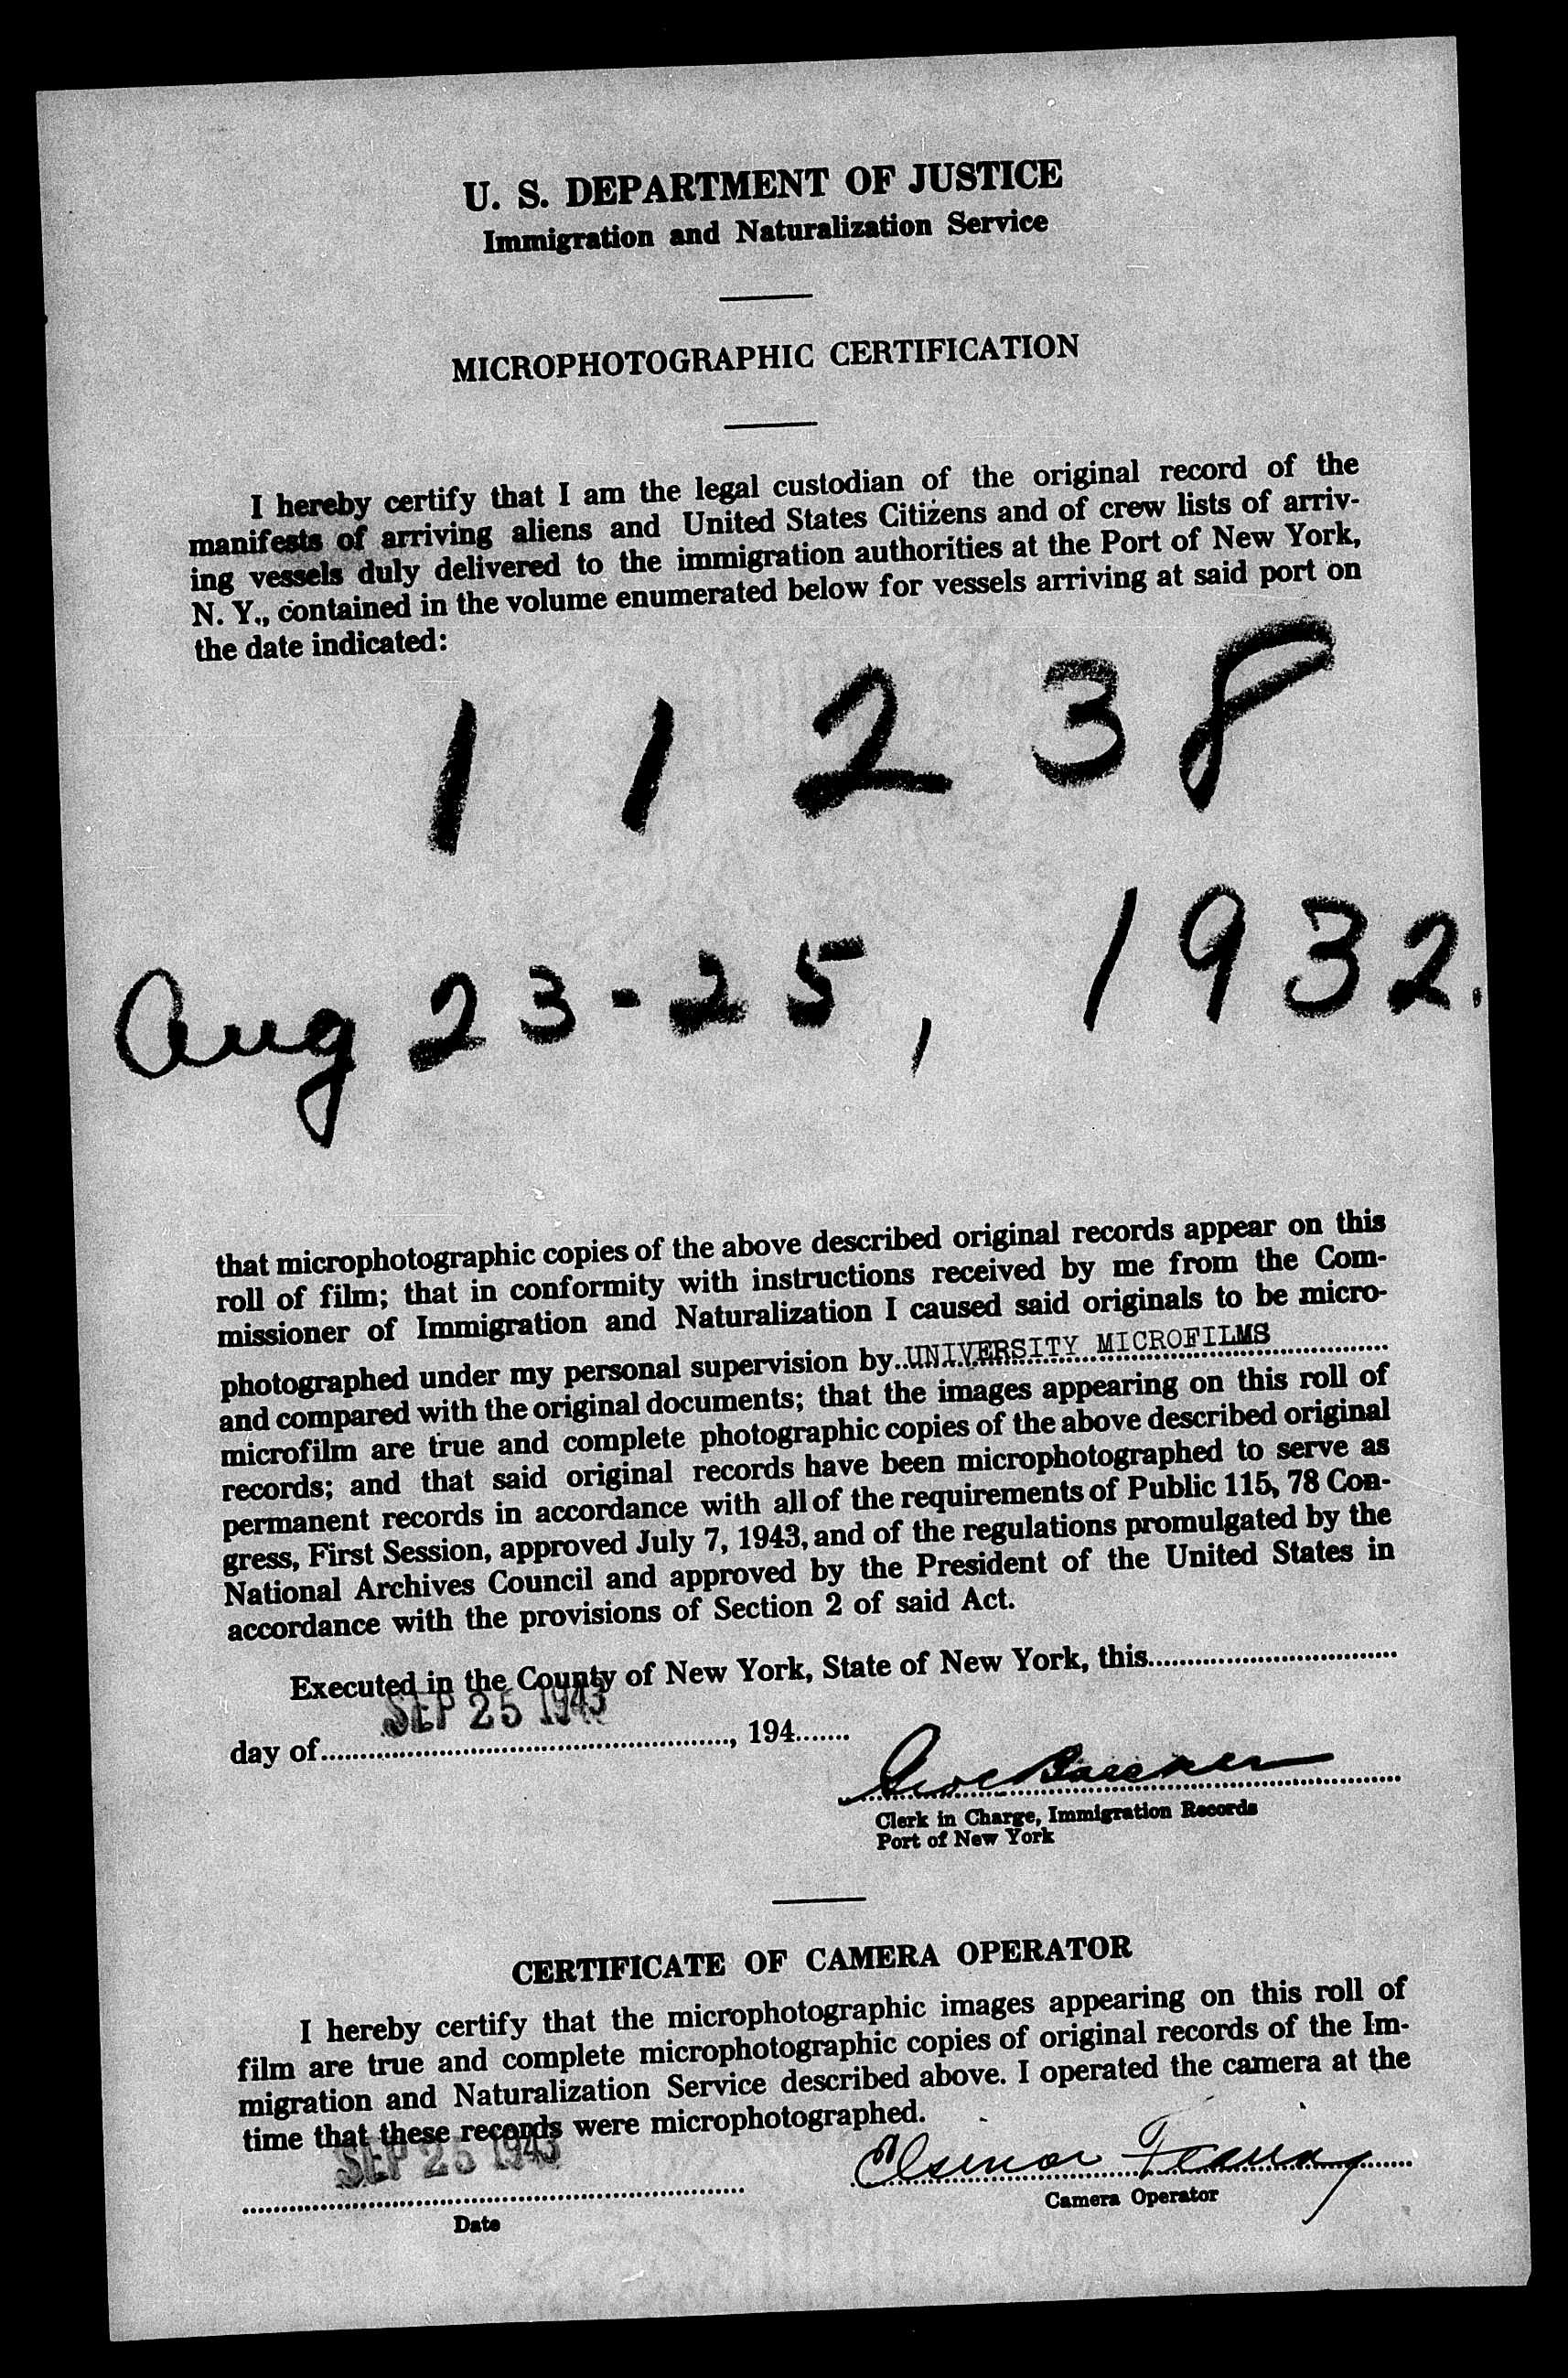 U. S. DEPARTMENT OF JUSTICE
Immigration and Naturalization Service
MICROPHOTOGRAPHIC CERTIFICATION
I hereby certify that I am the legal custodian of the original record of the
manifests of arriving aliens and United States Citizens and of crew lists of arriv-
ing vessels duly delivered to the immigration authorities at the Port of New York,
N. Y., contained in the volume enumerated below for vessels arriving at said port on
the date indicated:
11238
Aug 23-25, 1932.
that microphotographic copies of the above described original records appear on this
roll of film; that in conformity with instructions received by me from the Com-
missioner of Immigration and Naturalization I caused said originals to be micro-
photographed under my personal supervision by UNIVERSITY MICROFILMS
and compared with the original documents; that the images appearing on this roll of
microfilm are true and complete photographic copies of the above described original
records; and that said original records have been microphotographed to serve as
permanent records in accordance with all of the requirements of Public 115, 78 Con-
gress, First Session, approved July 7, 1943, and of the regulations promulgated by the
National Archives Council and approved by the President of the United States in
accordance with the provisions of Section 2 of said Act.
Executed in the County of New York, State of New York, this
SEP 25 1943
day of, 194
Clerk in Charge, Immigration Records
Port of New York
CERTIFICATE OF CAMERA OPERATOR
I hereby certify that the microphotographic images appearing on this roll of
film are true and complete microphotographic copies of original records of the Im-
migration and Naturalization Service described above. I operated the camera at the
time that these records were microphotographed.
SEP 25 1943
Date
Camera Operator